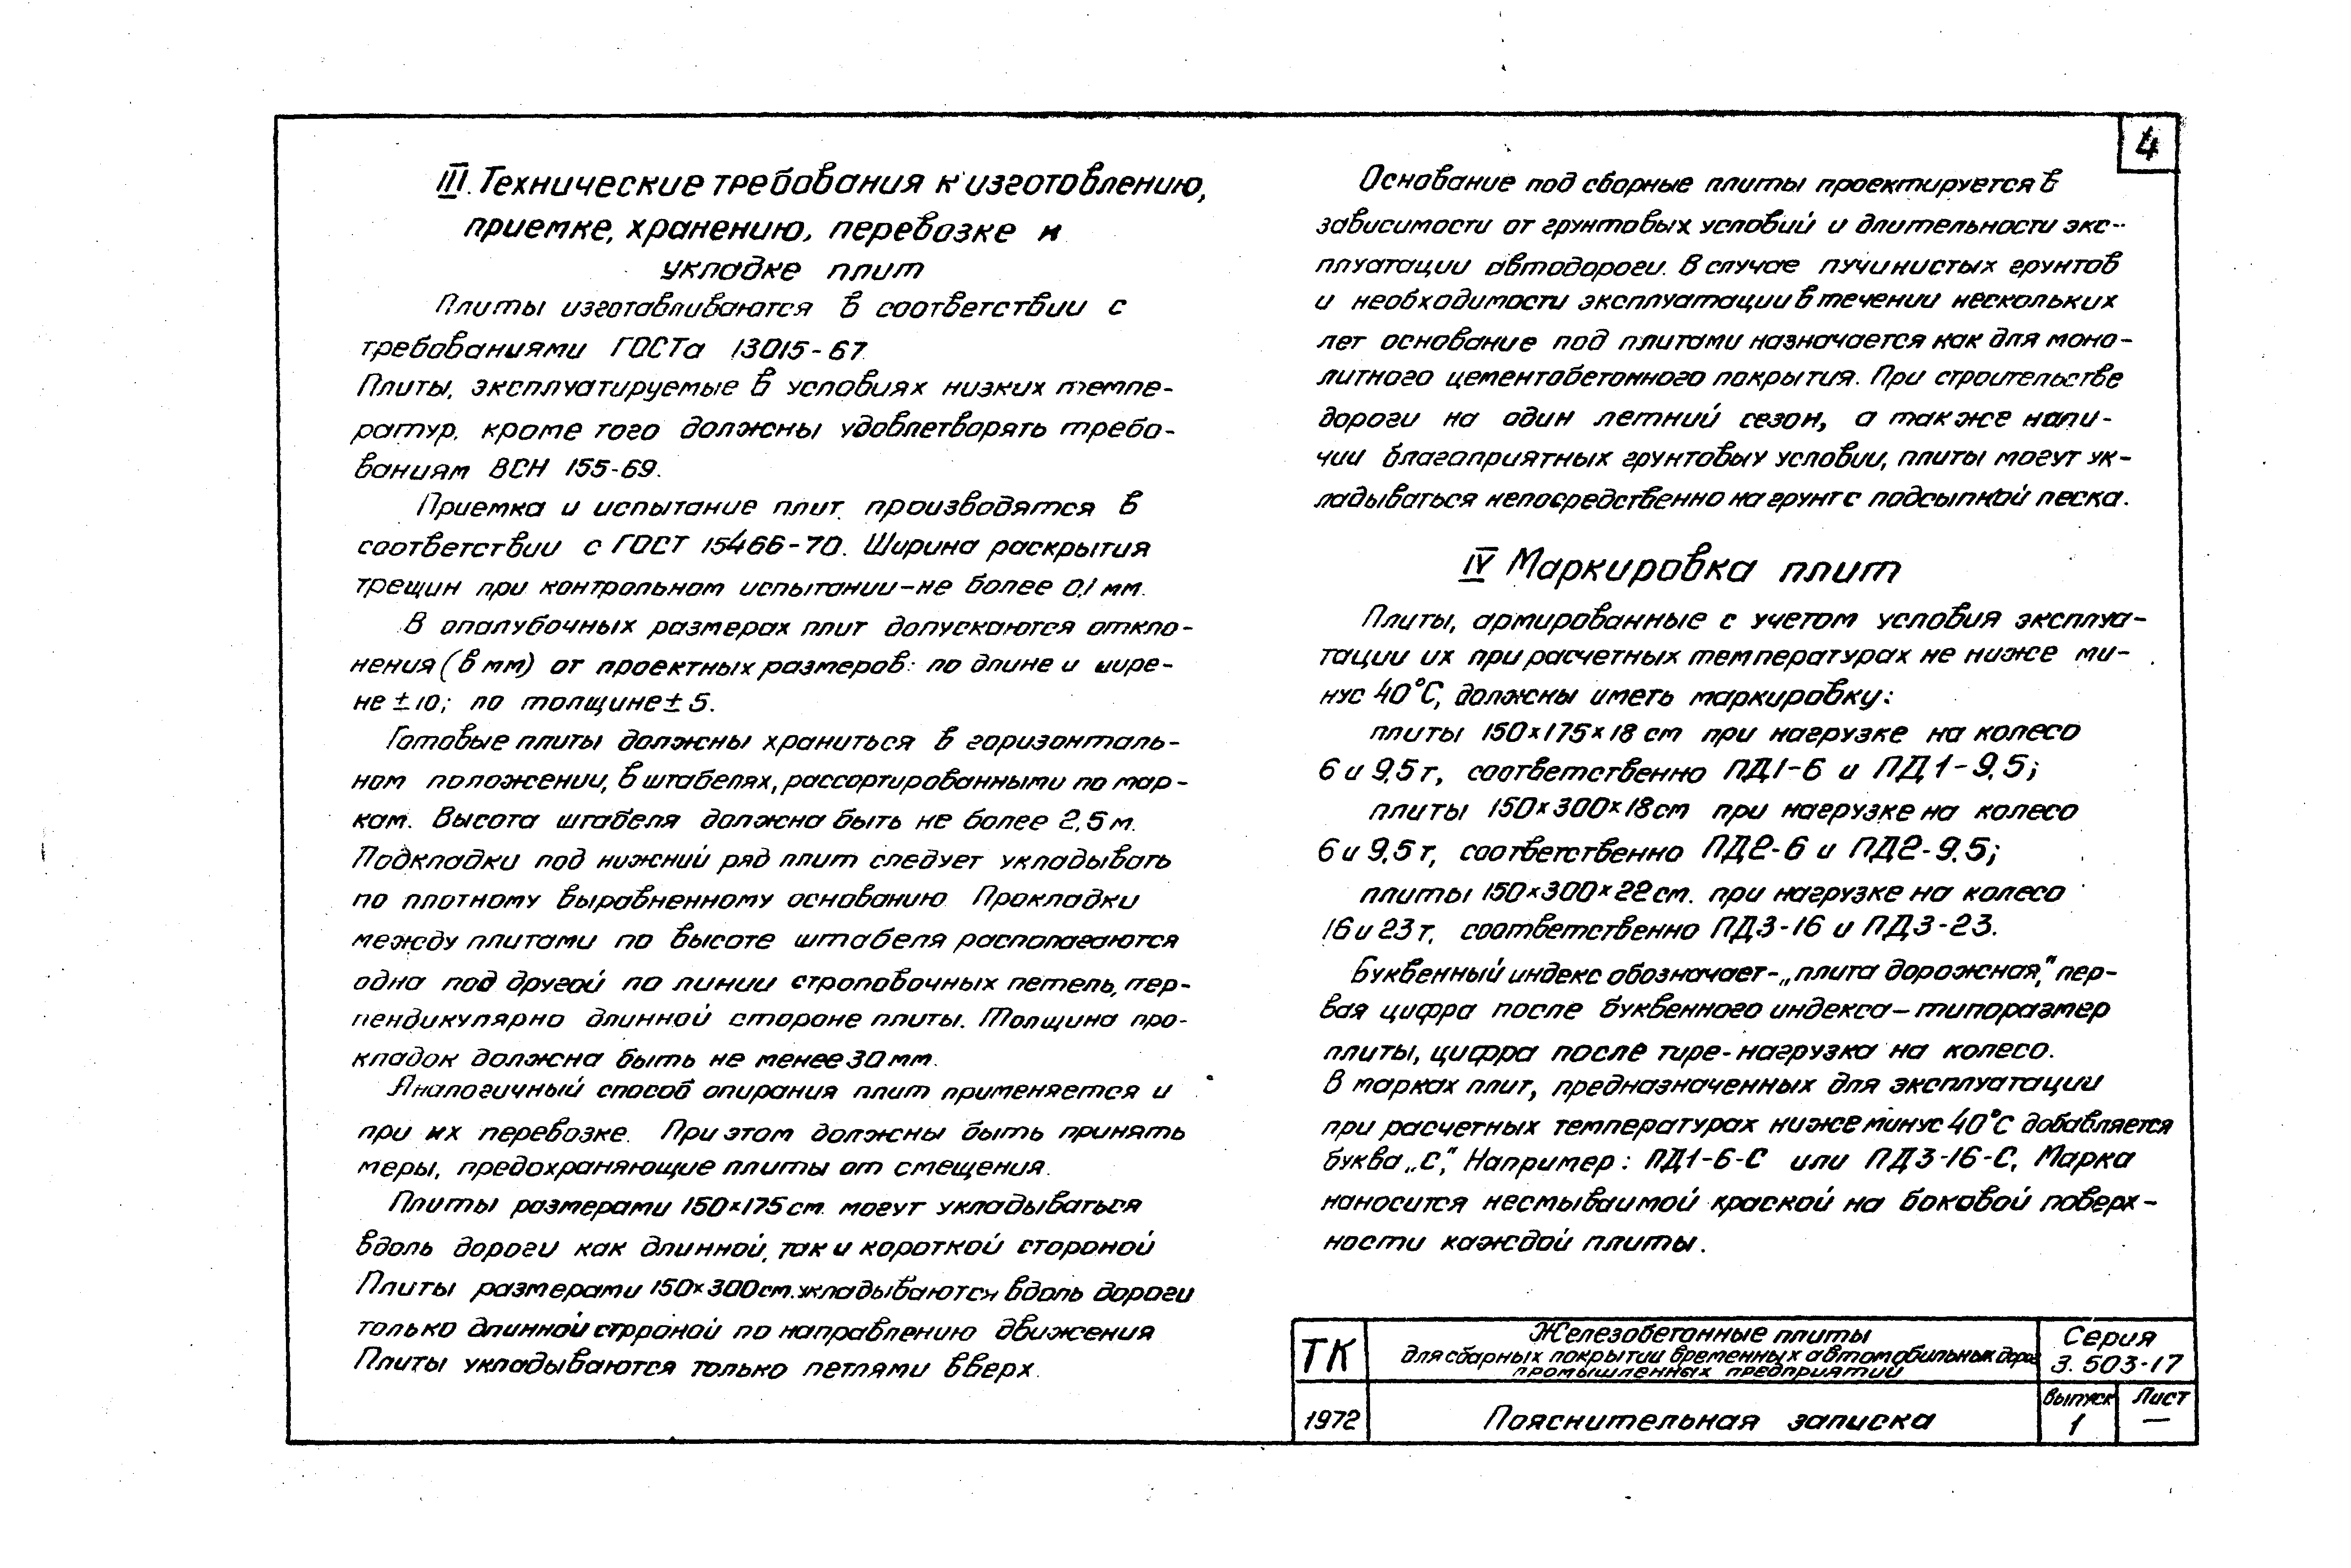 III. Технические требования к изготовлению,
приемке, хранению, перевозке и
укладке плит
Плиты изготавливаются в соответствии с
требованиями ГОСТа 13015-67
Плиты, эксплуатируемые в условиях низких темпе-
ратур, кроме того должны удовлетворять требо-
ваниям ВСН 155-69.
Приемка и испытание плит производятся в
соответствии с ГОСТ 15466-70. Ширина раскрытия
трещин при контрольном испытании-не более 0,1 мм.
В опалубочных размерах плит допускаются откло-
нения (в мм) от проектных размеров: по длине и шире-
не ± 10; по толщине ± 5.
Готовые плиты должны храниться в горизонталь-
ном положении, в штабелях, рассортированными по мар-
кам. Высота штабеля должна быть не более 2,5 м.
Подкладки под нижний ряд плит следует укладывать
по плотному выравненному основанию. Прокладки
между плитами по высоте штабеля располагаются
одна под другой по линии строповочных петель, пер-
пендикулярно длинной стороне плиты. Толщина про-
кладок должна быть не менее 30 мм.
Аналогичный способ опирания плит применяется и
при их перевозке. При этом должны быть принять
меры, предохраняющие плиты от смещения.
Плиты размерами 150×175 см. могут укладываться
вдоль дороги как длинной, так и короткой стороной
Плиты размерами 150×300 см. укладываются вдоль дороги
только длинной стороной по направлению движения
Плиты укладываются только петлями вверх.
4
Основание под сборные плиты проектируется в
зависимости от грунтовых условий и длительности экс-
плуатации автодороги. В случае пучинистых грунтов
и необходимости эксплуатации в течении нескольких
лет основание под плитами назначается как для моно-
литного цементобетонного покрытия. При строительстве
дороги на один летний сезон, а также нали-
чии благоприятных грунтовых условии, плиты могут ук-
ладываться непосредственно на грунт с подсыпкой песка.
IV Маркировка плит
Плиты, армированные с учетом условия эксплуа-
тации их при расчетных температурах не ниже ми-
нус 40°С, должны иметь маркировку:
плиты 150×175×18 см при нагрузке на колесо
6 и 9,5 т, соответственно ПД1-6 и ПД1-9,5;
плиты 150×300×18 см при нагрузке на колесо
6 и 9,5 т, соответственно ПД2-6 и ПД2-9,5;
плиты 150×300×22 см. при нагрузке на колесо
16 и 23 т, соответственно ПД3-16 и ПД3-23.
Буквенный индекс обозначает-„плита дорожная," пер-
вая цифра после буквенного индекса-типоразмер
плиты, цифра после тире-нагрузка на колесо.
В марках плит, предназначенных для эксплуатации
при расчетных температурах ниже минус 40°С добавляется
буква „С," Например: ПД1-6-С или ПД3-16-С, Марка
наносится несмываимой краской на боковой поверх-
ности каждой плиты.
ТК
Железобетонные плиты
для сборных покрытии временных автомобильных дорог
промышленных предприятий
Серия
3.503-17
1972
Пояснительная записка
выпуск
1
Лист
—